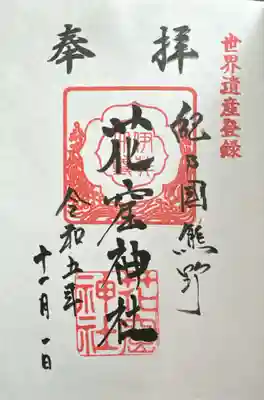 世界遺産登録
奉拝
紀乃国熊野
花窟神社
令和五年
十一月一日
花窟
神社